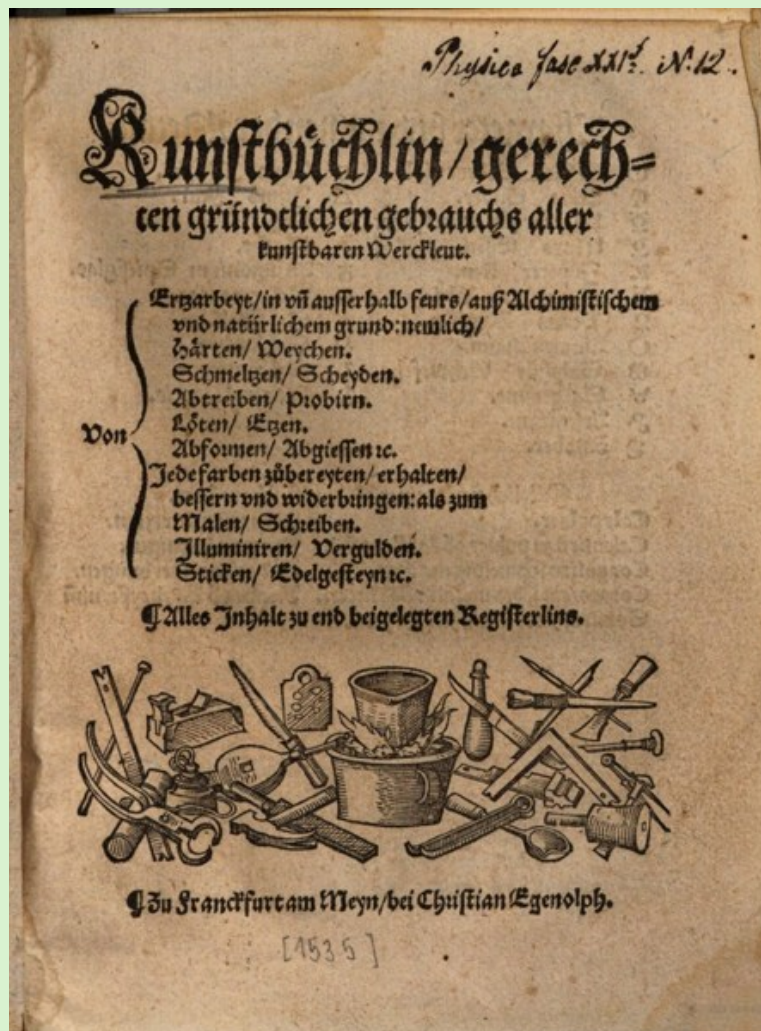 Physica fasc XXI. N. 12.
Kunstbüchlin/gerech=
ten gründtlichen gebrauchs aller
kunstbaren Werckleut.
Von
Ertzarbeyt/in vñ ausserhalb feurs/auß Alchimistischem
vnd natürlichem grund:nemlich/
Härten/ Weychen.
Schmeltzen/ Scheyden.
Abtreiben/ Probirn.
Löten/ Etzen.
Abformen/ Abgiessen ꝛc.
Jede farben zůbereyten/ erhalten/
bessern vnd widerbringen:als zum
Malen/ Schreiben.
Illuminiren/ Vergulden.
Sticken/ Edelgesteyn ꝛc.
¶Alles Inhalt zu end beigelegten Registerlins.
¶Zu Franckfurt am Meyn/bei Christian Egenolph.
[1535]